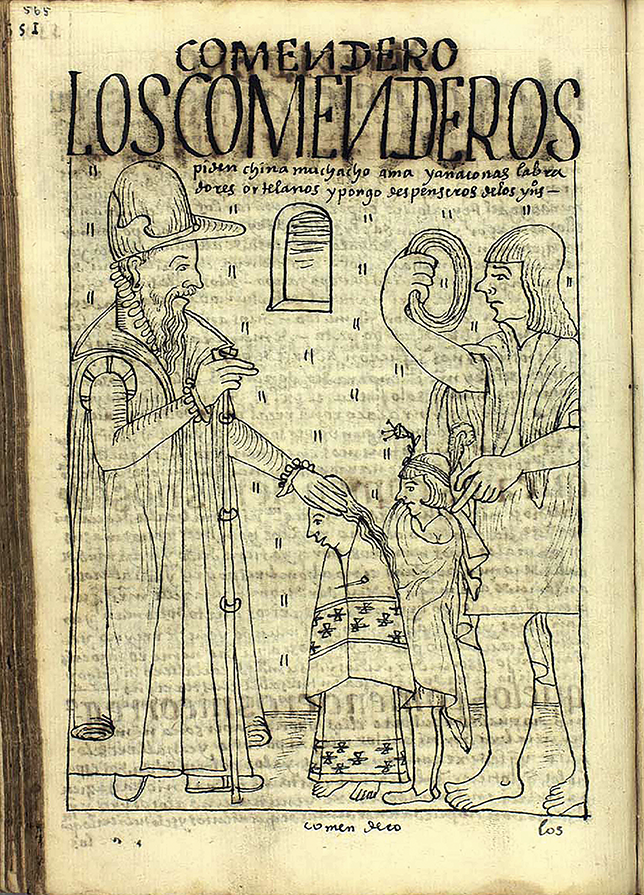 565
51
COMENDERO
LOSCOMENDEROS
piden china muchacho ama yanaconas labra
dores ortelanos y pongo despenseros delos yns
comendero
los